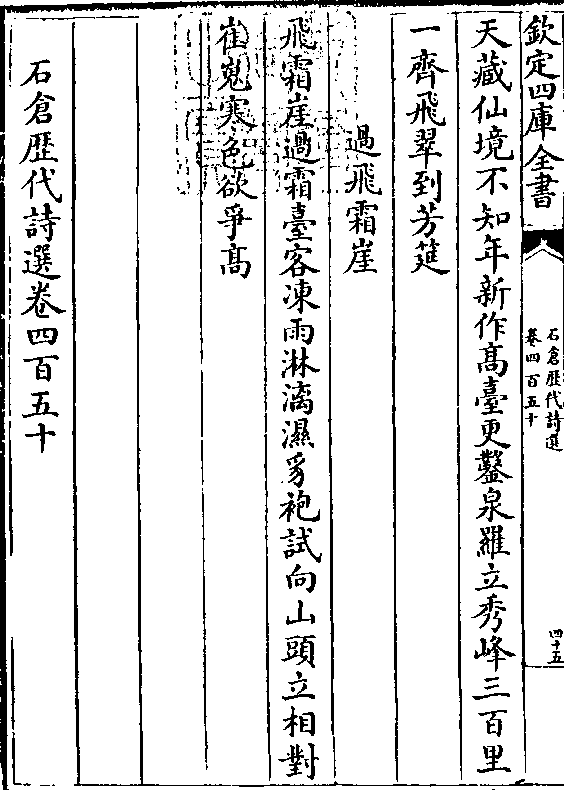 欽定四庫全書
石倉歴代詩選
卷四百五十
四十五
天藏仙境不知年新作高臺更鑿泉羅立秀峰三百里
一齊飛翠到芳筵
過飛霜崖
飛霜崖過霜臺客凍雨淋漓濕豸袍試向山頭立相對
崔嵬寒色欲爭高
石倉歴代詩選卷四百五十